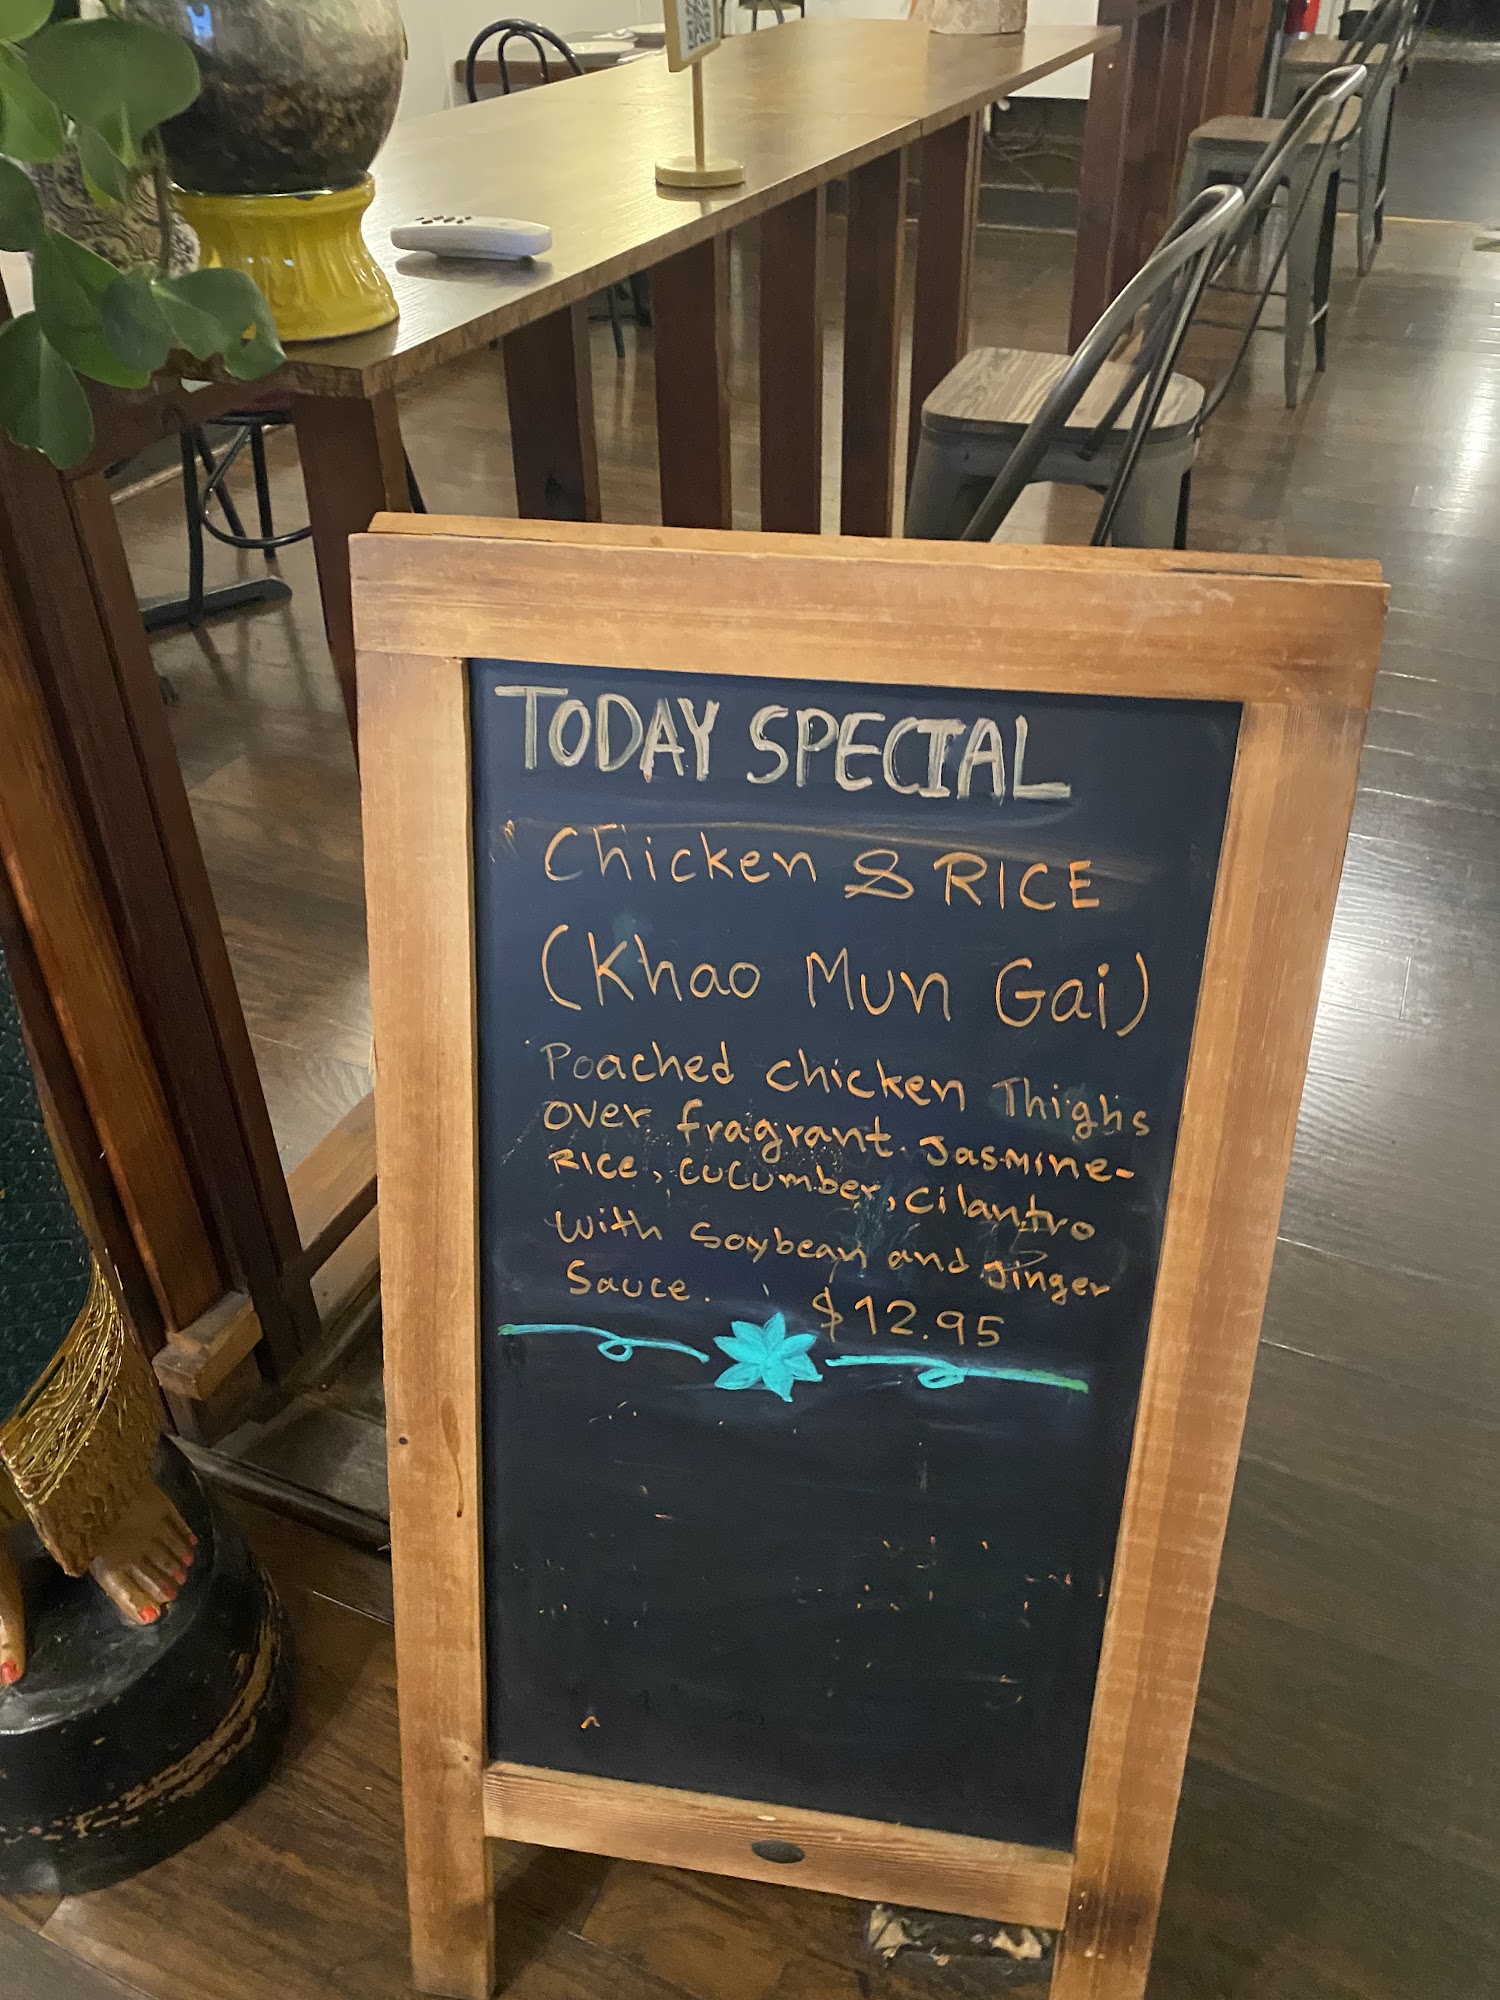 TODAY SPECIAL
Chicken & RICE
(Khao Mun Gai)
Poached chicken Thighs
over fragrant Jasmine-
Rice, cucumber, cilantro
with Soybean and ginger
Sauce. $12.95